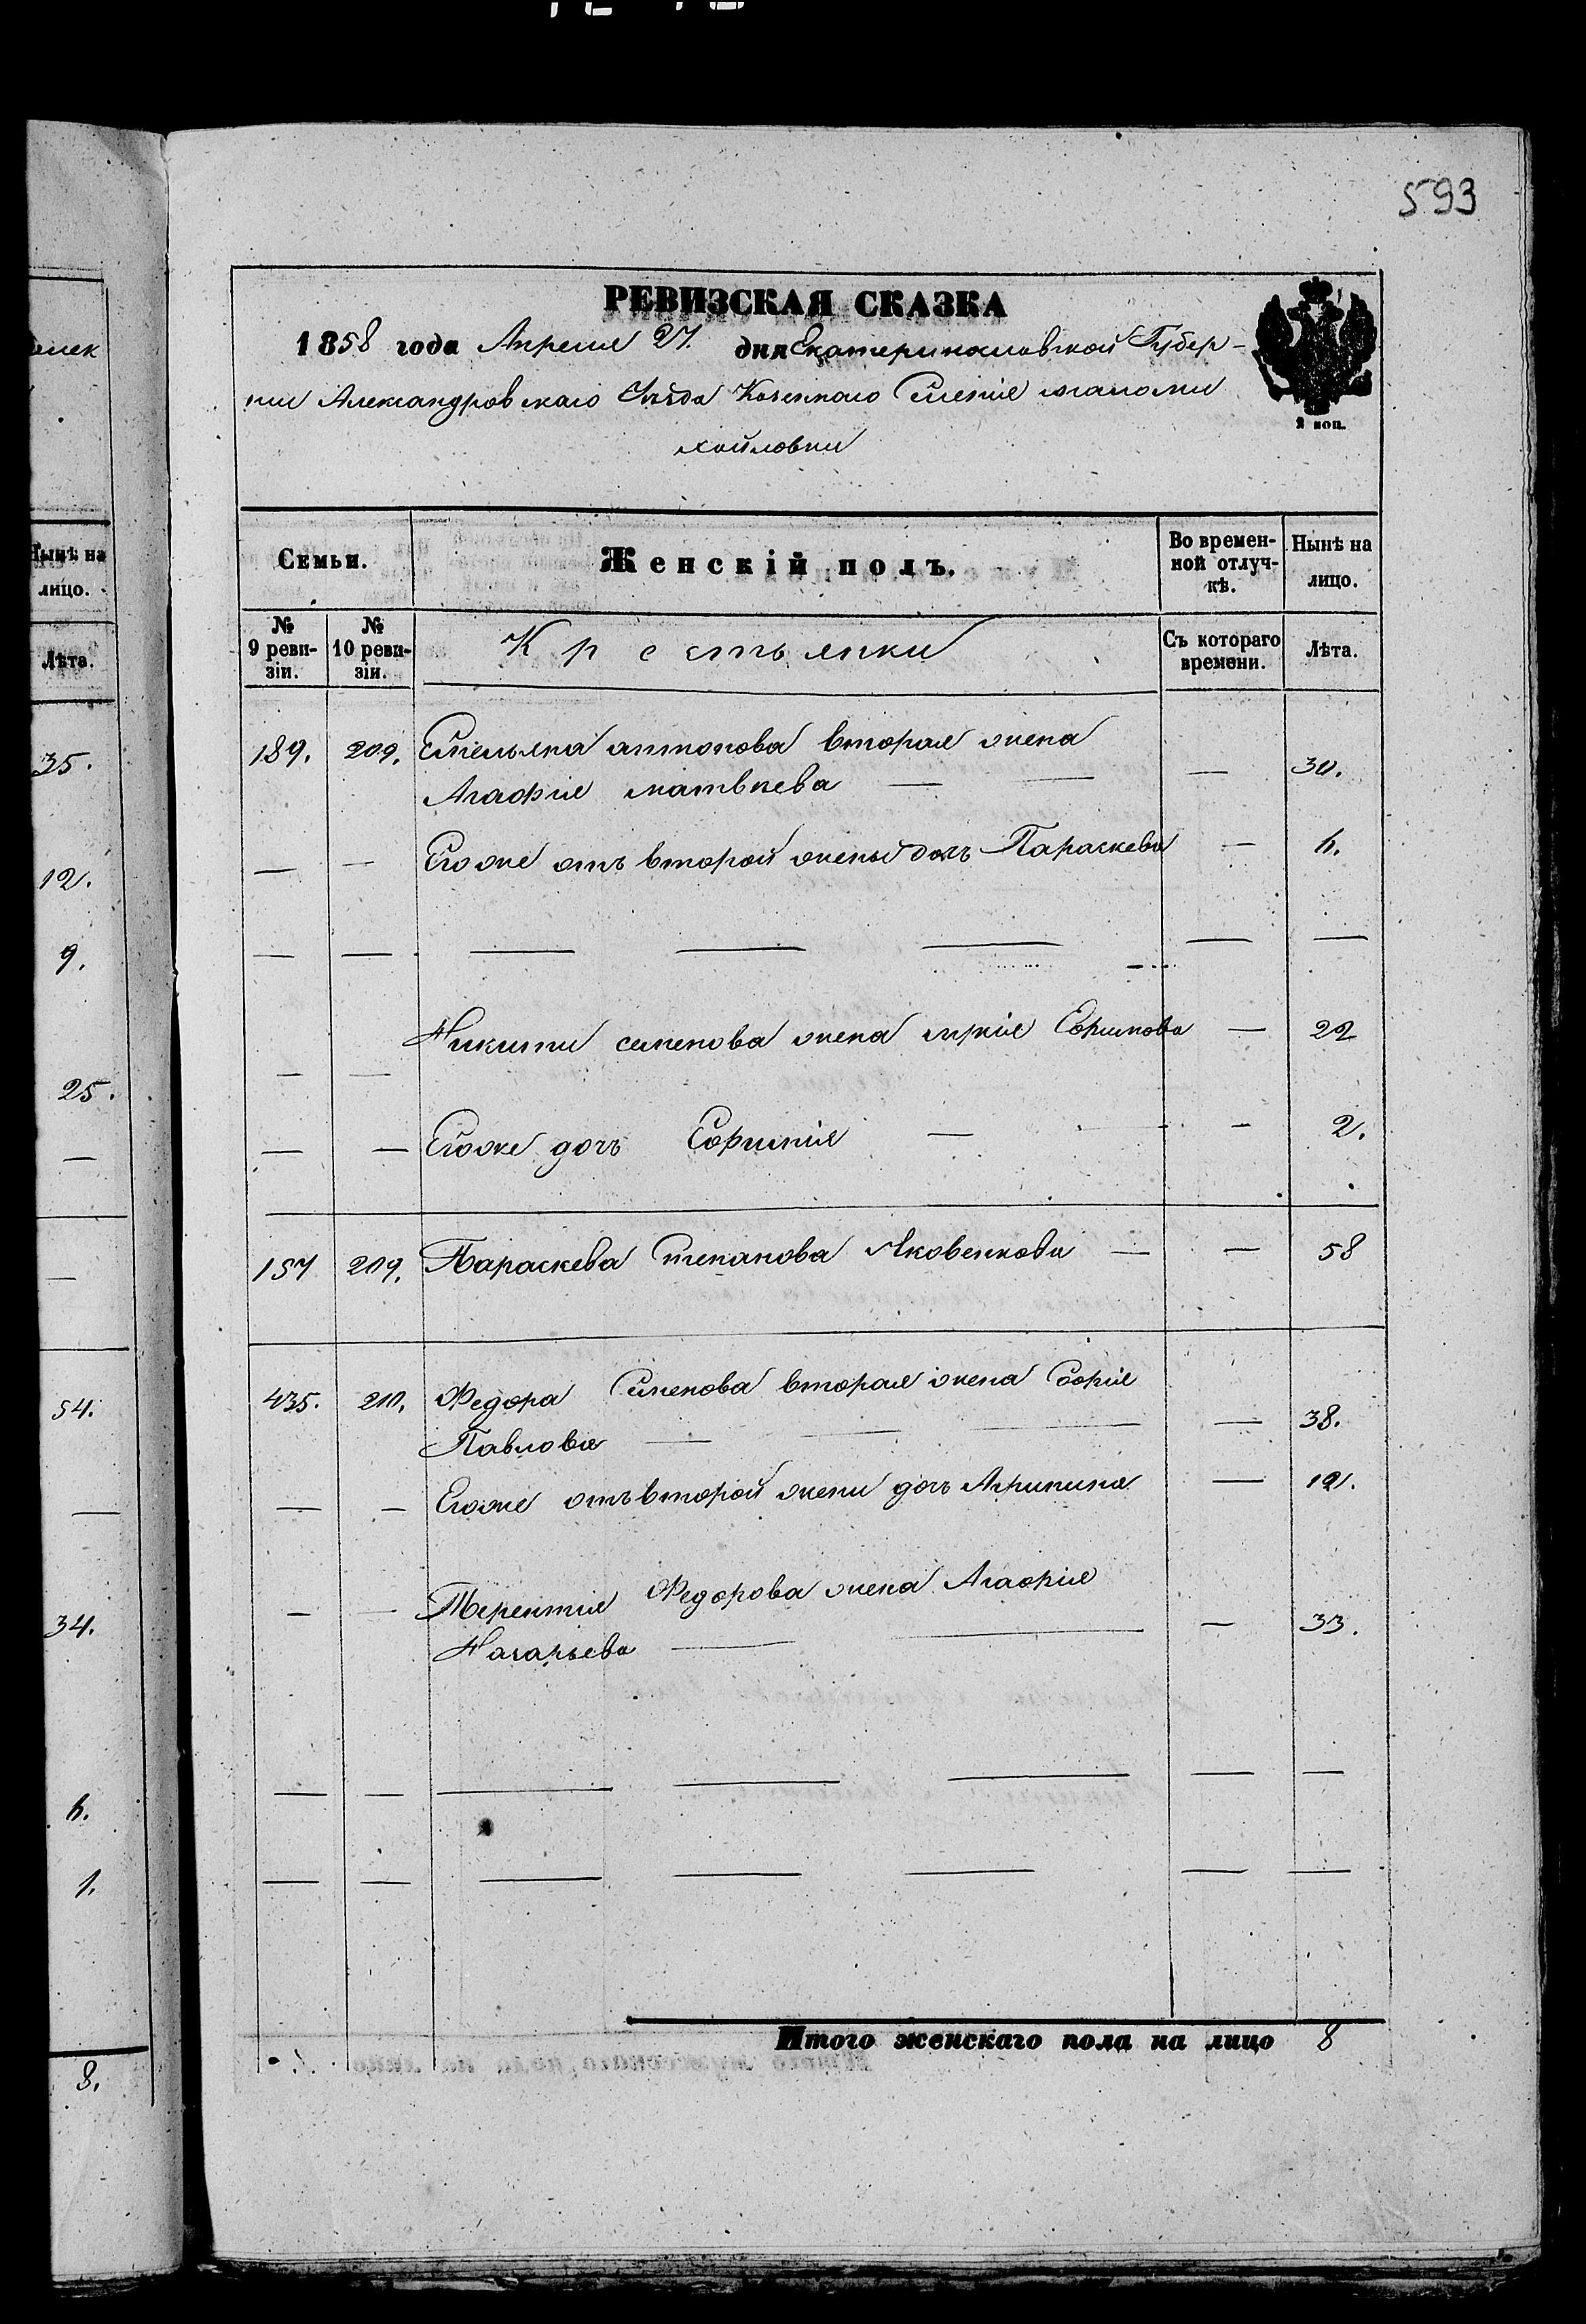 593
РЕВИЗСКАЯ СКАЗКА
1858 года Апреля 27. дня Екатеринославской Губер-
нии Александровскаго Уѣзда Казеннаго Селенія
хайловки
2 коп.
Семьи.
Женскій полъ.
Во времен-
ной отлуч-
кѣ.
Нынѣ на
лицо.
№
9 реви-
зіи.
№
10 реви-
зіи.
Крестьянки
Съ котораго
времени.
Лѣта.
189. 209. Емельяна антонова вторая жена
Агафия матвѣева — — — 30.
— — Егоже отъ второй жены дочь Параскева — 6.
— — — — — — —
Никиты семенова жена Ефимова — 22
— —
— — Егоже дочь Ефимия — - 2.
157 209. Параскева Степанова Яковенкова — — 58
435. 210. Федора Семенова вторая жена София
Павлова — — — — 38.
— — Егоже отъ второй жены дочь Агрипина — 12.
— — Терентия Федорова жена Агафия
Назарьева — — — 33.
— — — — — — —
— — — — — — —
Итого женскаго пола на лицо 8
Нынѣ на
лицо.
Лѣта.
35.
12.
9.
25.
—
—
54.
—
34.
6.
1.
8.